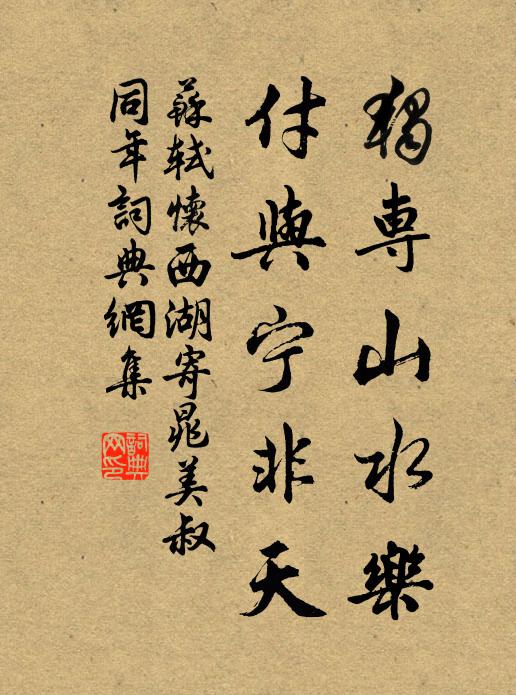 獨専山水樂
付與宁非天
蘇軾懷西湖寄晁美叔
同年詞典網集
詞典網印